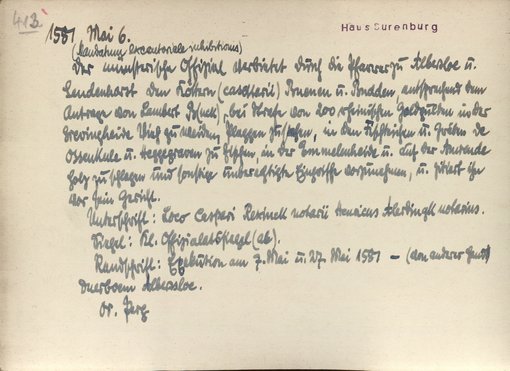 413.
Haus Surenburg
1581 Mai 6.
(Mandatum executoriale inhibitionis)
Der münsterische Offizial verbietet durch die Pfarrer zu Albersloe u.
Sendenhorst den Köttern (casatarii) Buenen u. Budden entsprechend dem
Antrage von Lambert Buck, bei Strafe von 200 rheinischen Goldgulden in der
Vieh zu weiden, Plaggen zu stechen, in den Fischteichen u. Gräben de
Ossenkule u. Heggegraven zu fischen, in der Emmelenheide u. auf der
Holz zu schlagen und sonstige unberechtigte Eingriffe vorzunehmen, u. zitiert ihn
vor sein Gericht.
Unterschrift: Loco Caspari notarii Henricus notarius.
Siegel: Kl. Offizialatssiegel (ab).
Randschrift: Exekution am 7. Mai u. 27. Mai 1581 – (von anderer Hand)
Albersloe.
Or. Perg.